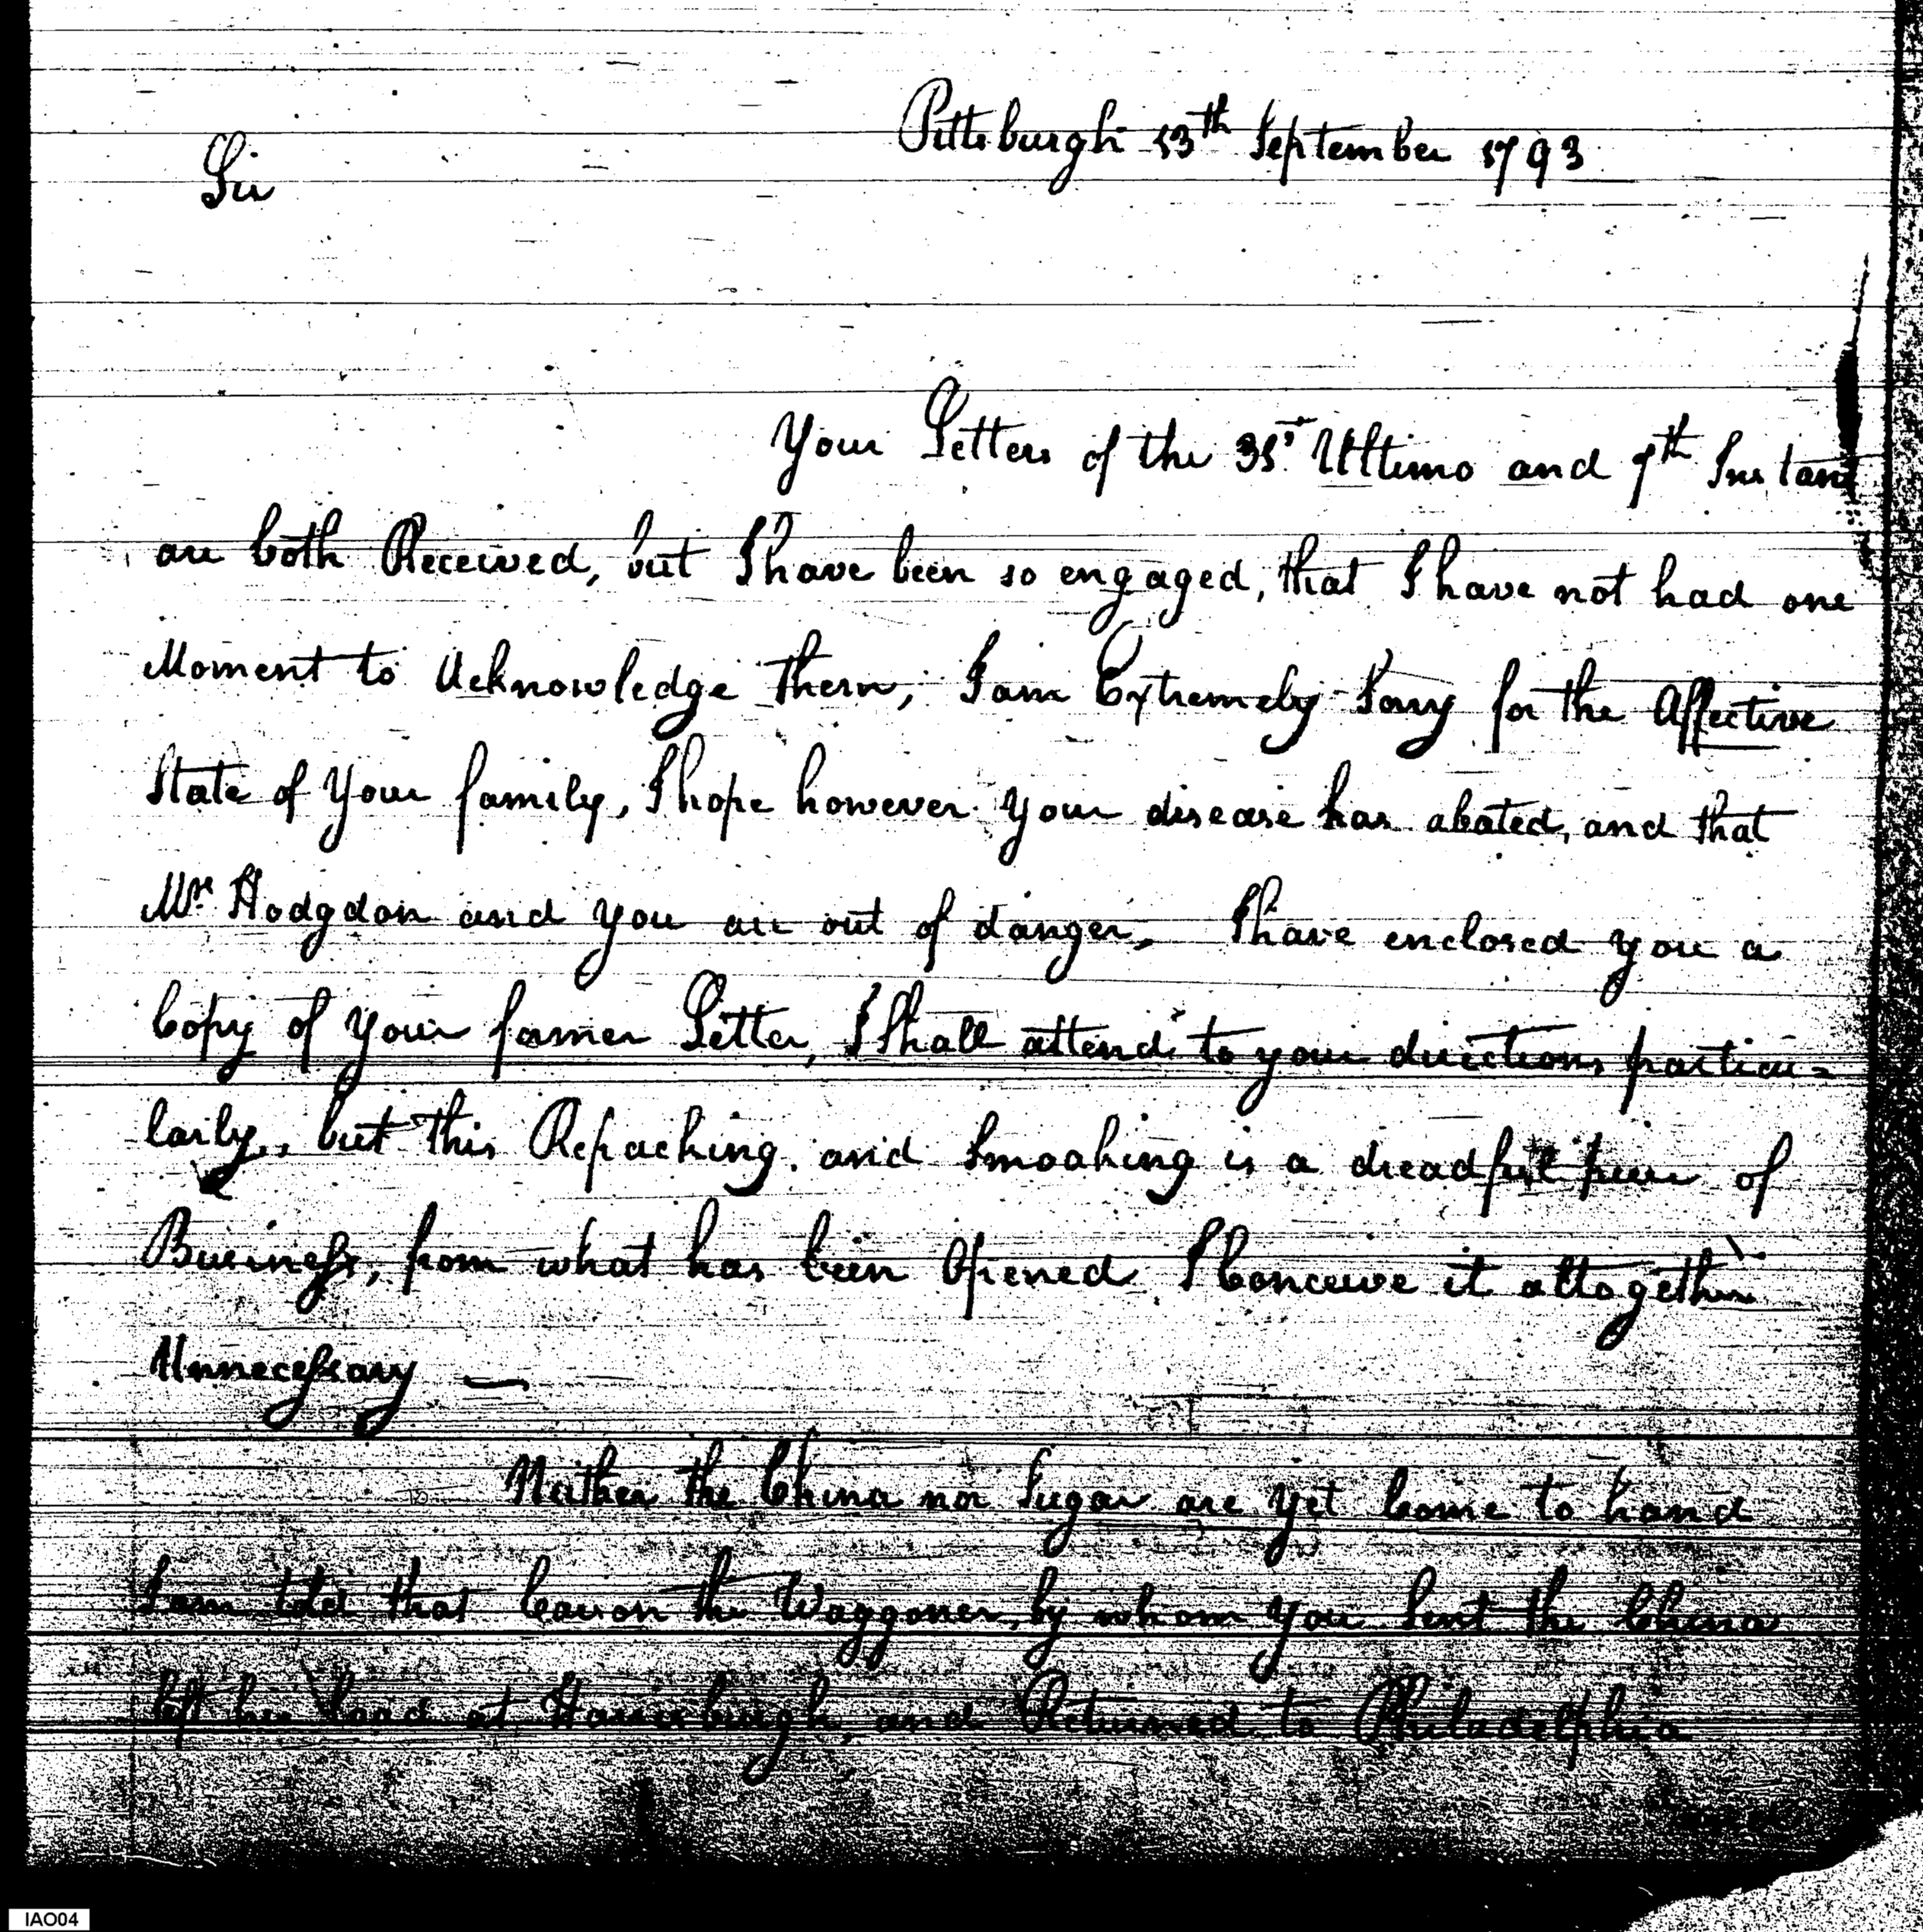 Pittsburgh 13th September 1793
Sir
Your Letters of the 31st Ultimo and 7th Instant
are both Received, but I have been so engaged, that I have not had one
Moment to Acknowledge them, I am Extremely Sorry for the Affective
State of Your family, I hope however your disease has abated, and that
Mr. Hodgdon and you are out of danger, I have enclosed you a
Copy of your former Letter, I Shall attend to your directions particu=
larly, but this Repacking and Smoaking is a dreadful piece of
Business, from what has been Opened I Conceive it altogether
Unnecessary —
Neither the China nor Sugar are yet Come to hand
I am told that the Waggoner, by whom you Sent the China
left his load at Harrisburgh, and Returned to Philadelphia
IAO04